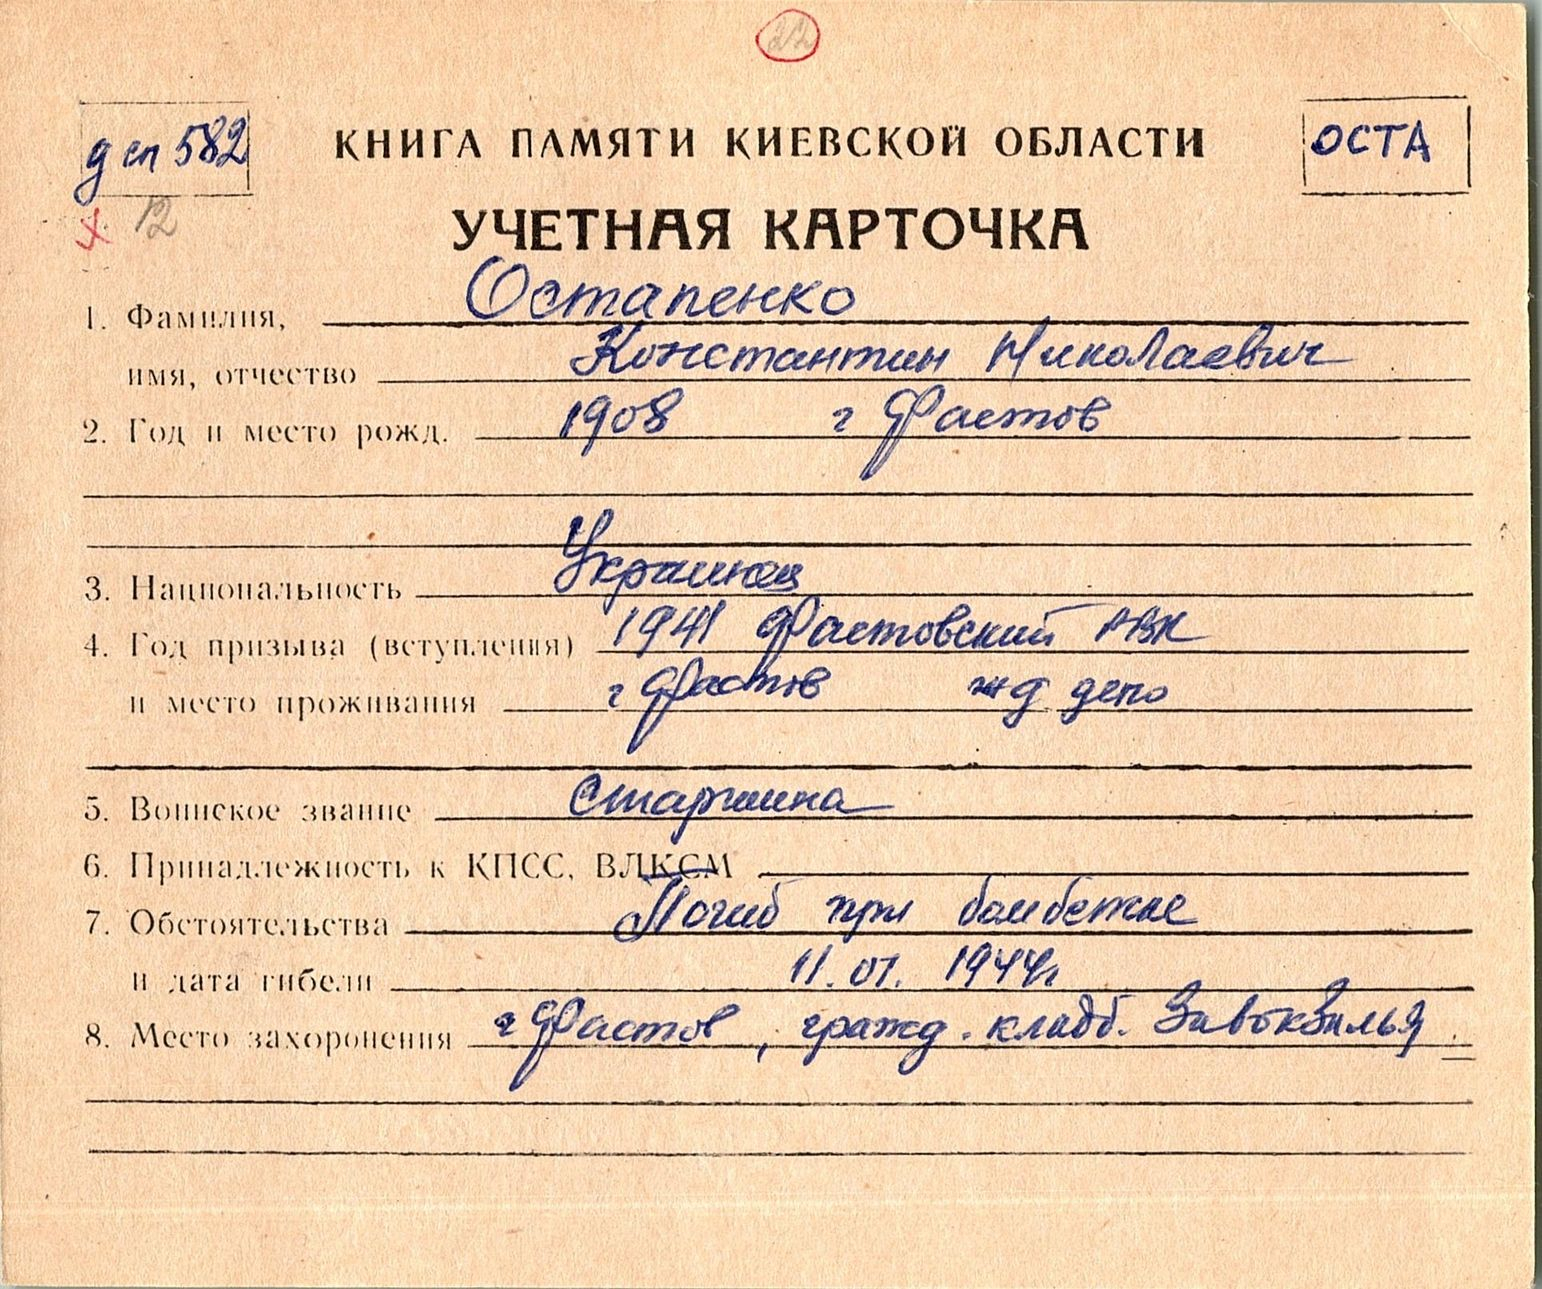 22
д сп 582
КНИГА ПАМЯТИ КИЕВСКОЙ ОБЛАСТИ
ОСТА
х 12
УЧЕТНАЯ КАРТОЧКА
1. Фамилия, Остапенко
имя, отчество Константин Николаевич
2. Год и место рожд. 1908 г Фастов
3. Национальность Украинец
4. Год призыва (вступления) 1941 Фастовский РВК
и место проживания г Фастов жд депо
5. Воинское звание Старшина
6. Принадлежность к КПСС, ВЛКСМ
7. Обстоятельства Погиб при бомбежке
и дата гибели 11.01.1944г
8. Место захоронения г Фастов, гражд. кладб. Завокзалья